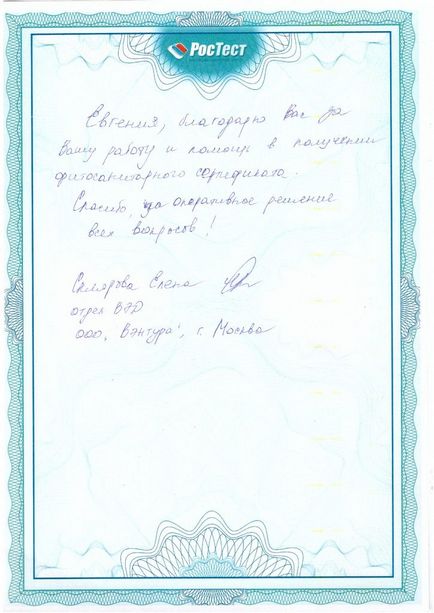 РосТест
Евгения, благодарю Вас за
Вашу работу и помощь в получении
фитосанитарного сертификата.
Спасибо, за оперативное решение
всех вопросов!
Склярова Елена
отдел ВЭД
ООО "Вэнтура", г. Москва